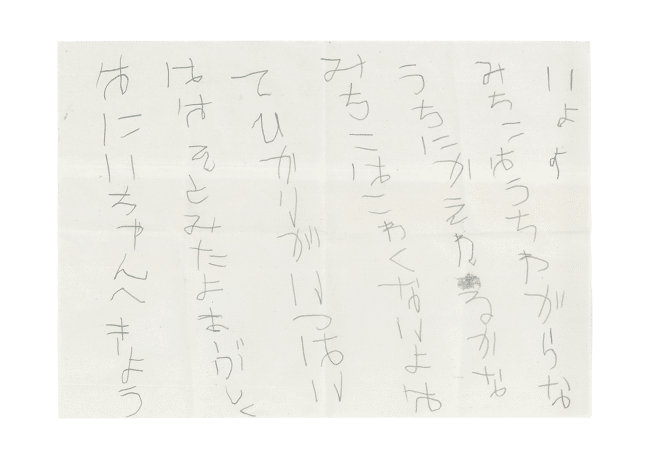 おにいちゃんへきよう
ははそとみたよまぶしく
てひかりがいっぱい
みちこはこわくないよね
うちにかえれるかな
みちこはうちわがらな
いよ